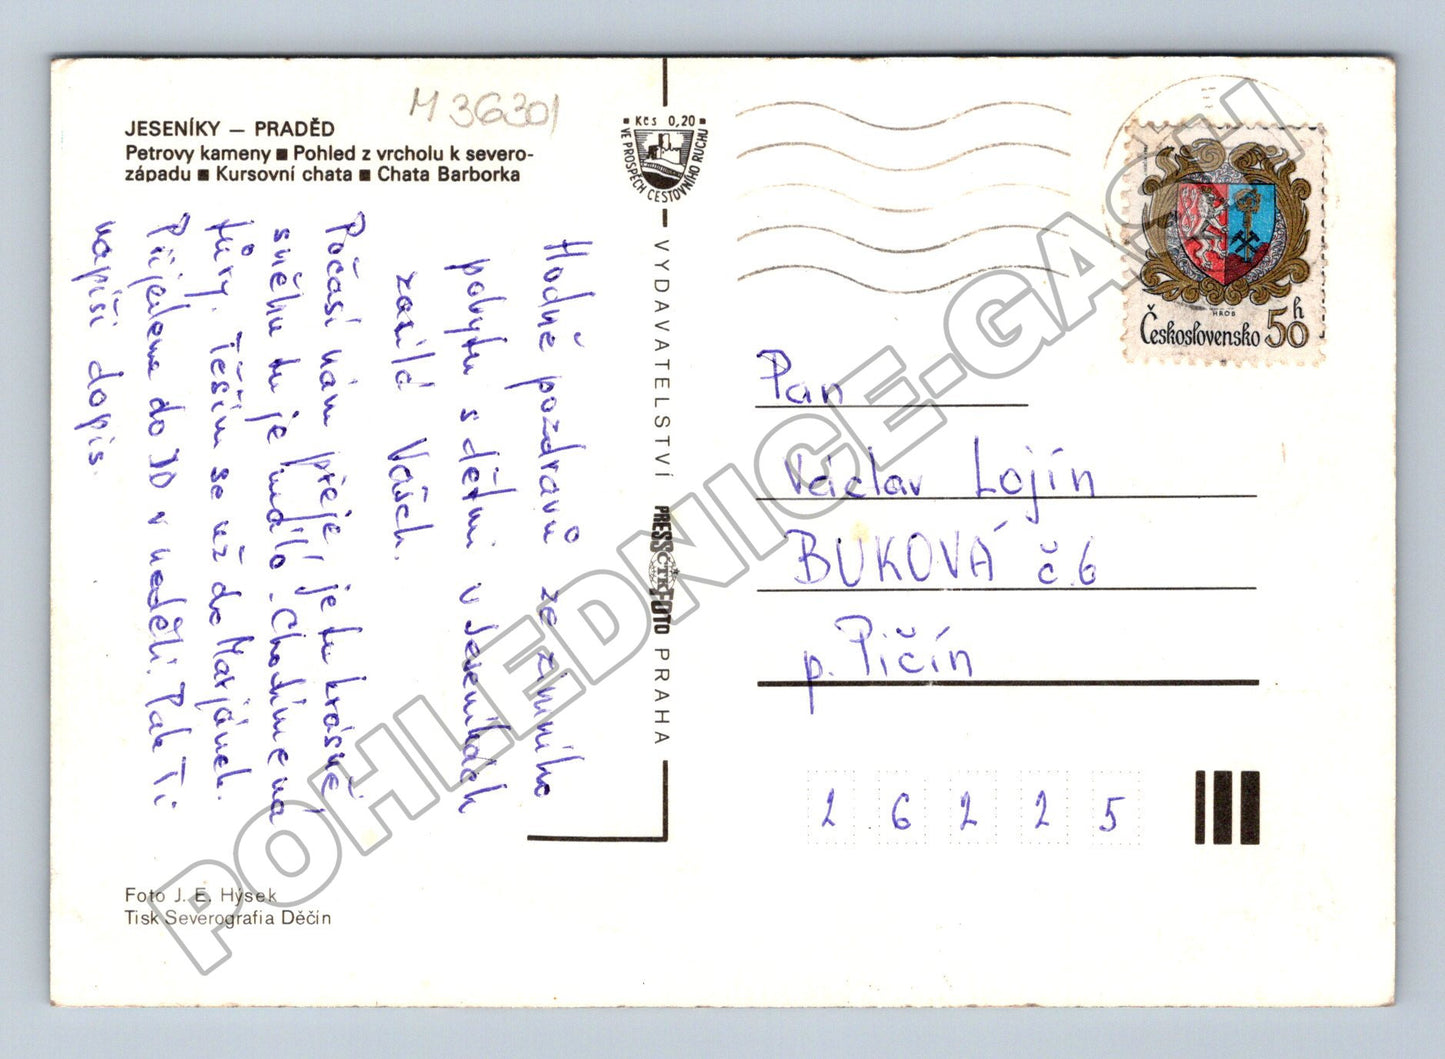 JESENÍKY — PRADĚD
Petrovy kameny ■ Pohled z vrcholu k severo-
západu ■ Kursovní chata ■ Chata Barborka
M 36301
Hodně pozdravů ze zimního
pobytu s dětmi v Jeseníkách
zasílá Vašch.
Počasí nám přeje, je tu krásně,
sněhu tu je málo. Chodíme na
túry. Těším se už do Marjánek.
Přijedeme do JD v neděli. Pak Ti
napíši dopis.
Foto J. E. Hýsek
Tisk Severografia Děčín
Kčs 0,20
VE PROSPĚCH CESTOVNÍHO RUCHU
VYDAVATELSTVÍ PRESSFOTO PRAHA
ČTK
HROB
Československo 50 h
Pan
Václav Lojín
BUKOVÁ č. 6
p. Pičín
26225
POHLEDNICE-GASH